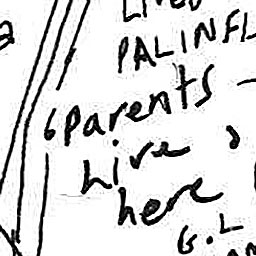 Lived
PALINFL
Parents -
Live
here
G.L